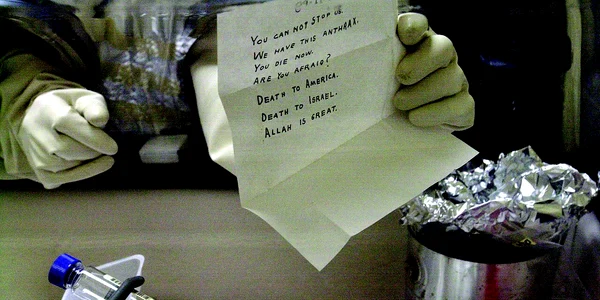 09-11
YOU CAN NOT STOP US.
WE HAVE THIS ANTHRAX.
YOU DIE NOW.
ARE YOU AFRAID?
DEATH TO AMERICA.
DEATH TO ISRAEL.
ALLAH IS GREAT.